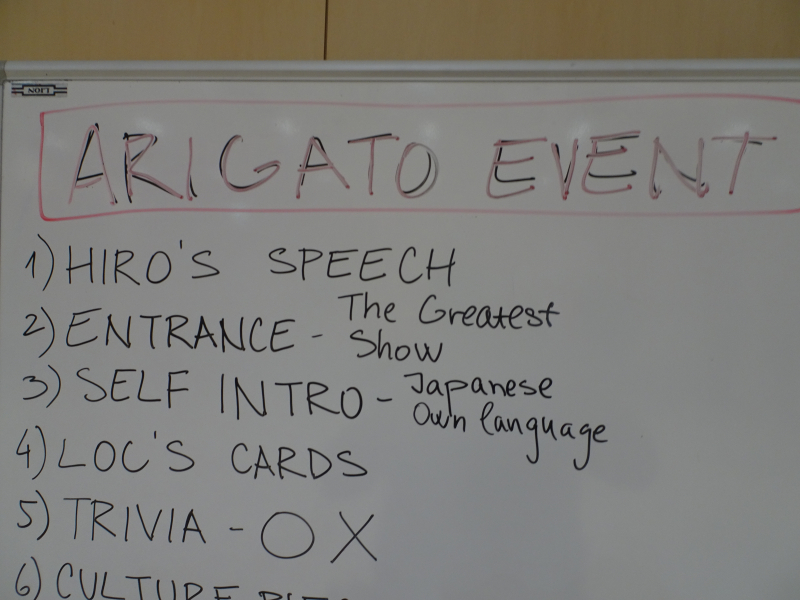 LION
ARIGATO EVENT
1) HIRO'S SPEECH
2) ENTRANCE - The Greatest
Show
3) SELF INTRO - Japanese
Own language
4) LOC'S CARDS
5) TRIVIA - O X
6) CULTURE